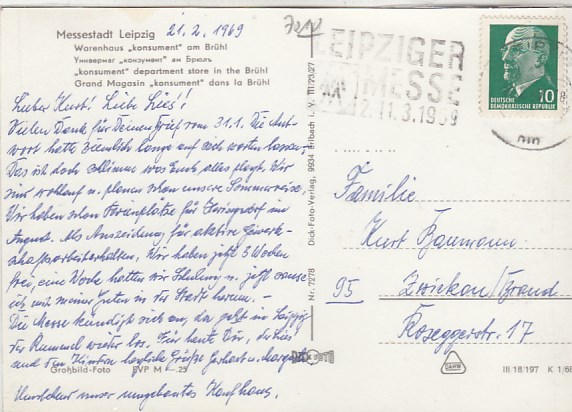 Messestadt Leipzig 21.2.1969
Warenhaus „konsument“ am Brühl
Универмаг «конзумент» ам Брюль
„konsument“ department store in the Brühl
Grand Magasin „konsument“ dans la Brühl
Lieber Kurt! Liebe Lies!
Vielen Dank für Deinen Brief vom 31.1. Die Ant-
wort hatte ziemlich lange auf sich warten lassen.
Das ist doch schlimm was Euch alles plagt. Wir
sind wohlauf u. planen schon unsere Sommerreise,
Wir haben schon Ferienplätze für im
August. Als Auszeichnung für aktive Gewerk-
schaftsarbeit erhalten. Wir haben jetzt 3 Wochen
frei, eine Woche hatten wir Schulung u. jetzt
ich mit meiner Guten in der Stadt herum. –
Die Messe kündigt sich an, da geht in Leipzig
der Rummel wieder los. Für heute Dir,
und den Kindern herzliche Grüße Gerhard u.
Umstehend unser umgebautes Kaufhaus.
Großbild-Foto EVP M -.25
Nr. 7278 Dick-Foto-Verlag, 9934 Erlbach i. V. III/23/27
DICK FOTO
LEIPZIGER
MESSE
2.-11.3.1969
DEUTSCHE
DEMOKRATISCHE REPUBLIK
10
Familie
Kurt Baumann
95 Zwickau/Brand
Roseggerstr. 17
III 18/197 K 1/68